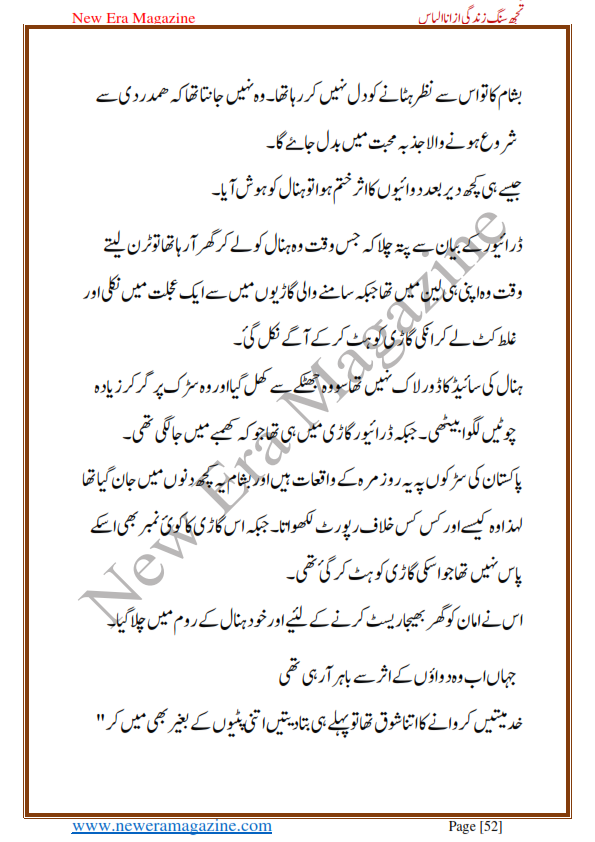 New Era Magazine
تجھ سنگ زندگی از انا الیاس
بشام کا تو اس سے نظر ہٹانے کو دل نہیں کر رہا تھا۔ وہ نہیں جانتا تھا کہ ھمدردی سے
شروع ہونے والا جذبہ محبت میں بدل جاۓ گا۔
جیسے ہی کچھ دیر بعد دوائیوں کا اثر ختم ہوا تو ہنال کو ہوش آیا۔
ڈرائیور کے بیان سے پتہ چلا کہ جس وقت وہ ہنال کو لے کر گھر آ رہا تھا تو ٹرن لیتے
وقت وہ اپنی ہی لین میں تھا جبکہ سامنے والی گاڑیوں میں سے ایک عجلت میں نکلی اور
غلط کٹ لے کر انکی گاڑی کو ہٹ کر کے آگے نکل گئ۔
ہنال کی سائیڈ کا ڈور لاک نہیں تھا سو وہ جھٹکے سے کھل گیا اور وہ سڑک پر گر کر زیادہ
چوٹیں لگوا بیٹھی۔ جبکہ ڈرائیور گاڑی میں ہی تھا جو کہ کھمبے میں جا لگی تھی۔
پاکستان کی سڑکوں پہ یہ روز مرہ کے واقعات ہیں اور بشام یہ کچھ دنوں میں جان گیا تھا
لہذا وہ کیسے اور کس کس خلاف رپورٹ لکھواتا۔ جبکہ اس گاڑی کا کوئ نمبر بھی اسکے
پاس نہیں تھا جو اسکی گاڑی کو ہٹ کر گئ تھی۔
اس نے امان کو گھر بھیجا ریسٹ کرنے کے لئیے اور خود ہنال کے روم میں چلا گیا۔
جہاں اب وہ دواؤں کے اثر سے باہر آ رہی تھی
خدمیتیں کروانے کا اتنا شوق تھا تو پہلے ہی بتا دیتیں اتنی پٹیوں کے بغیر بھی میں کر "
New Era Magazine
www.neweramagazine.com
Page [52]